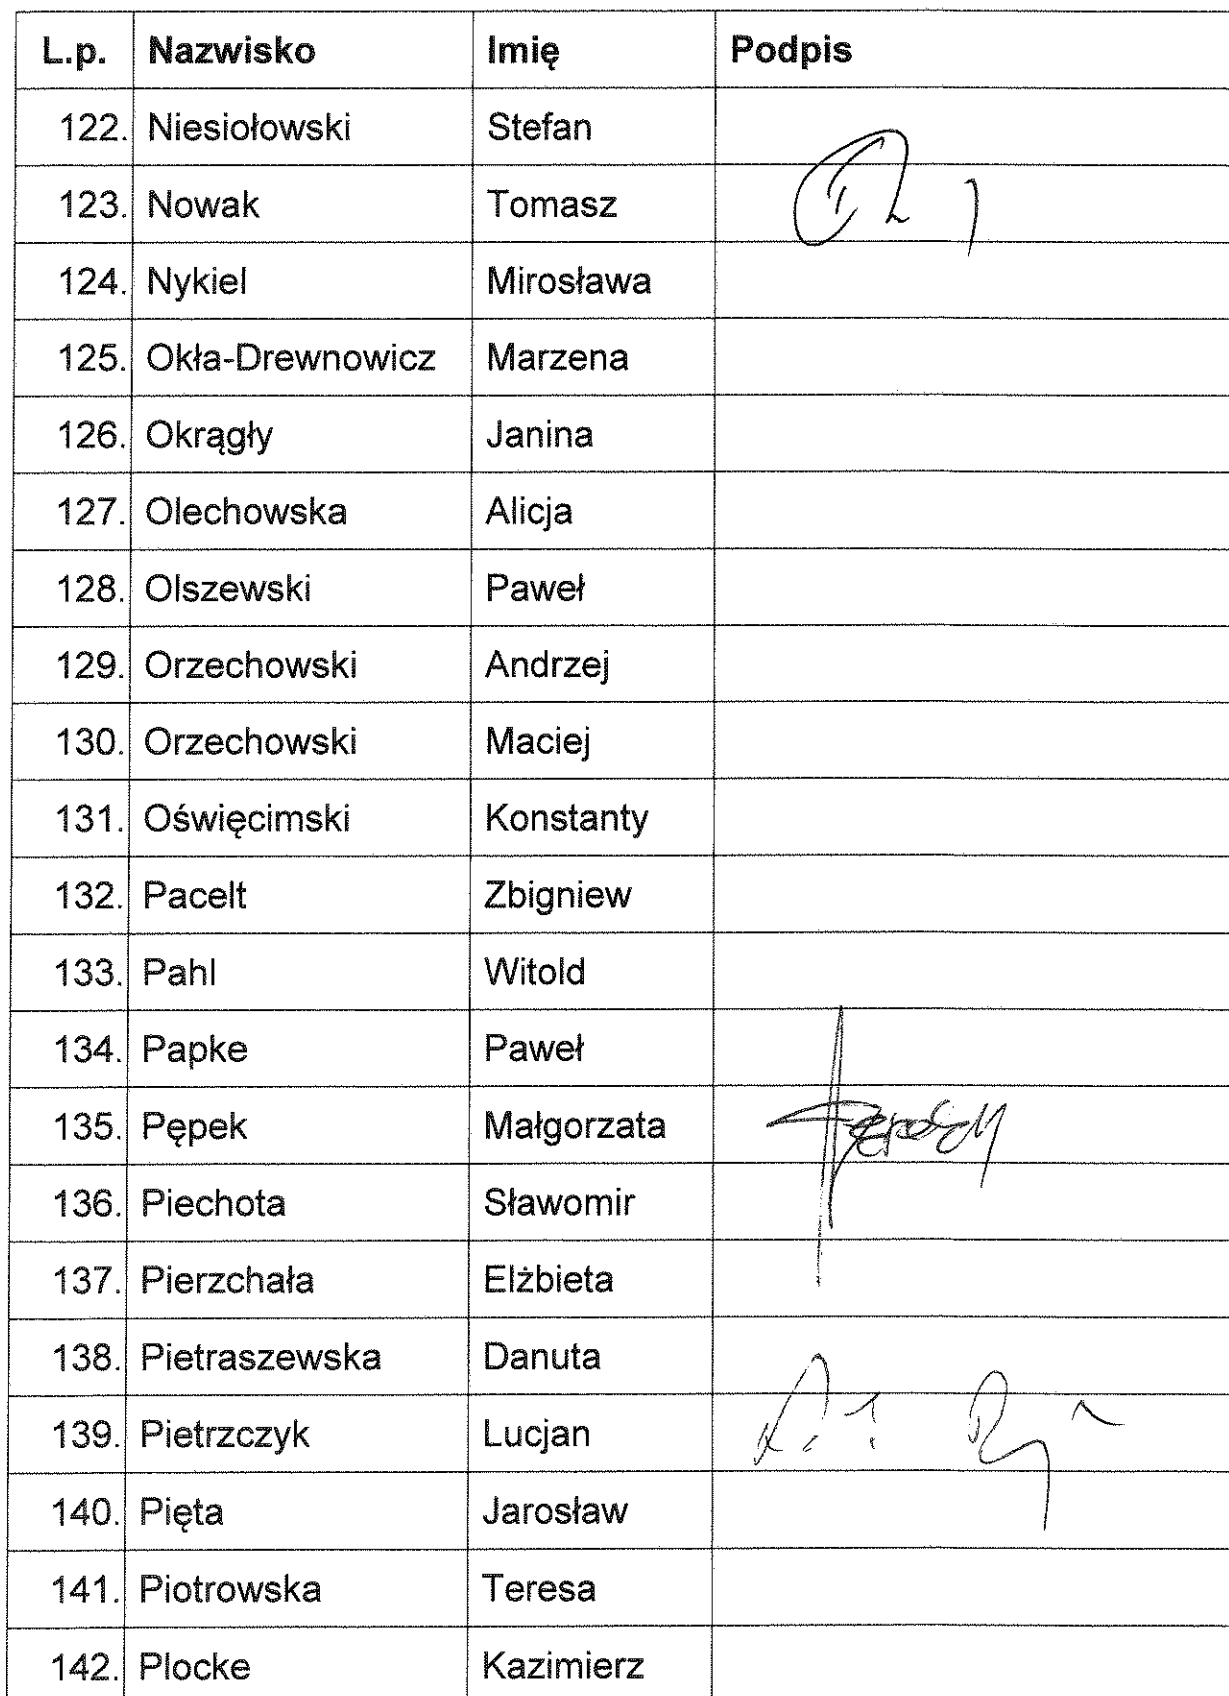 L.p. Nazwisko Imię Podpis
122. Niesiołowski Stefan
123. Nowak Tomasz
124. Nykiel Mirosława
125. Okła-Drewnowicz Marzena
126. Okrągły Janina
127. Olechowska Alicja
128. Olszewski Paweł
129. Orzechowski Andrzej
130. Orzechowski Maciej
131. Oświęcimski Konstanty
132. Pacelt Zbigniew
133. Pahl Witold
134. Papke Paweł
135. Pępek Małgorzata
136. Piechota Sławomir
137. Pierzchała Elżbieta
138. Pietraszewska Danuta
139. Pietrzczyk Lucjan
140. Pięta Jarosław
141. Piotrowska Teresa
142. Plocke Kazimierz